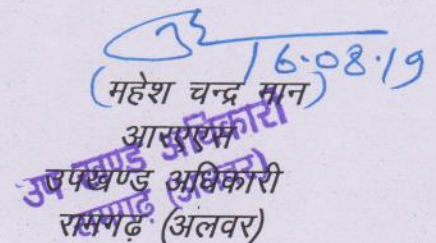 16.08.19
(महेश चन्द्र मान)
आरएएस
उपखण्ड अधिकारी
रामगढ़ (अलवर)
उप खण्ड अधिकारी
रामगढ़ (अलवर)